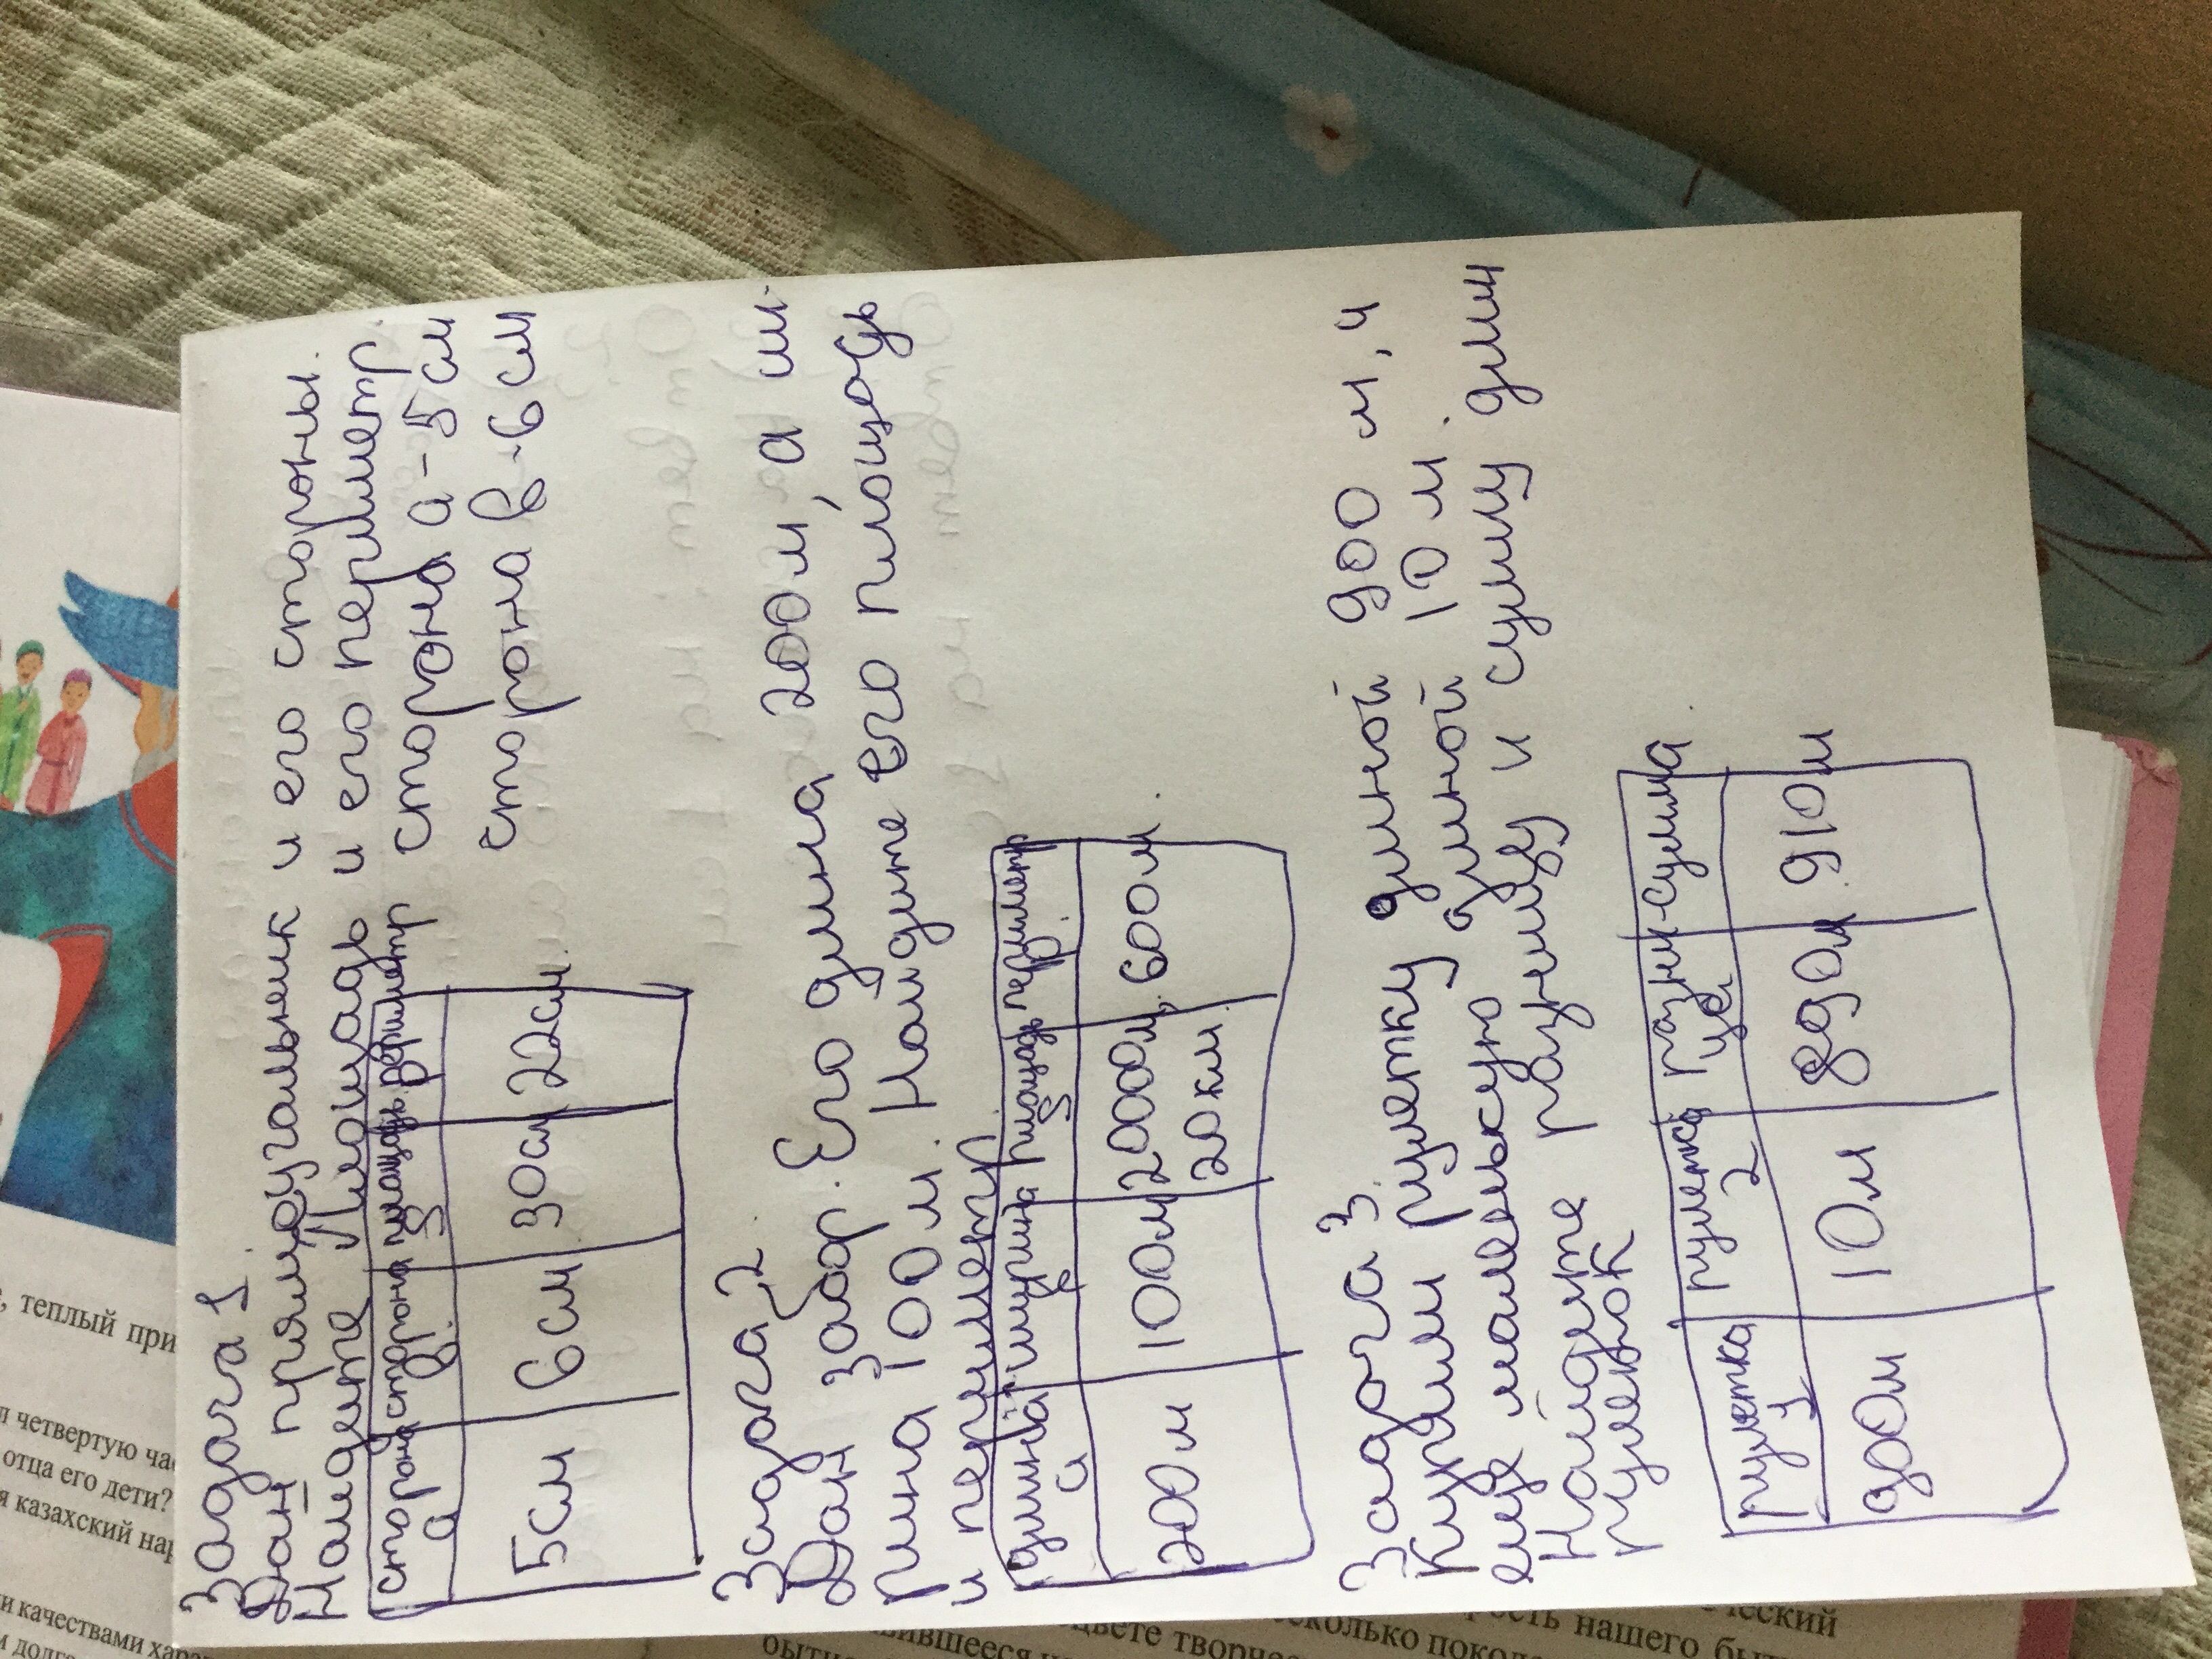 Задача 1.
Дан прямоугольник и его стороны.
Найдете Площадь и его периметр.
сторона а - 5 см
сторона в - 6 см
сторона а | сторона в | площадь S | периметр
5 см | 6 см | 30 см | 22 см.
Задача 2
Дан забор. Его длина 200 м, а ши-
рина 100 м. Найдите его площадь
и периметр.
длинна а | ширина в | площадь S | периметр р.
200 м | 100 м | 20000 м, 20 км. | 600 м.
Задача 3.
Купили рулетку длиной 900 м, и
еще маленькую длиной 10 м.
Найдите разницу и сумму длин
рулеток
рулетка 1 | рулетка 2 | разница | сумма
900 м | 10 м | 890 м | 910 м
, теплый при
четвертую час
отца его дети?
я казахский нар
и качествами хара
м долго
ческий
сколько покол
нашего бы
цвете творче
вившееся